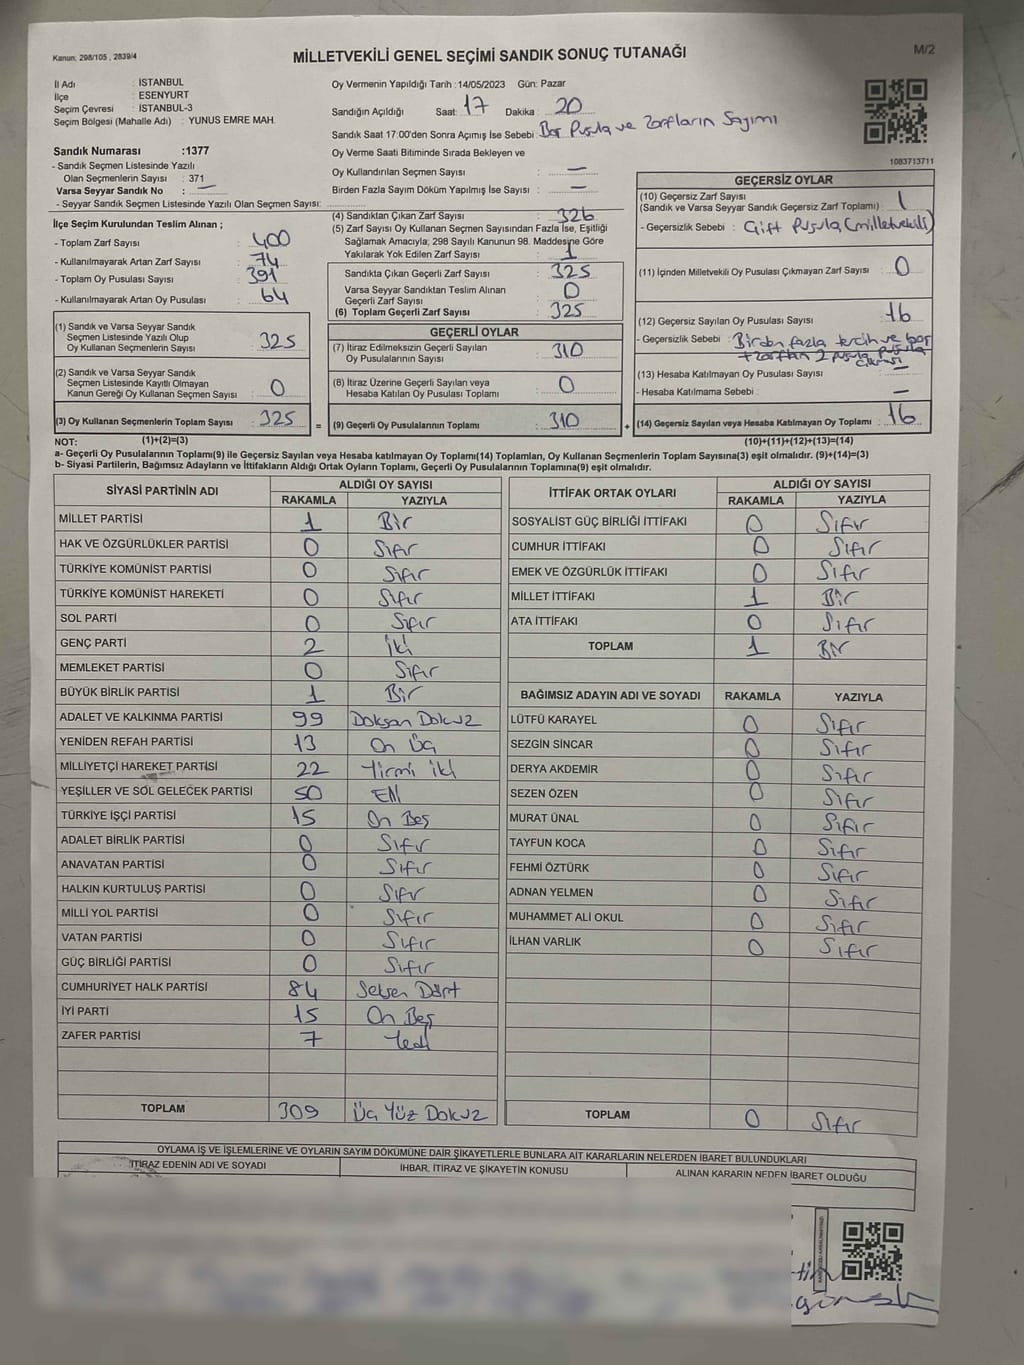 Kanun, 298/105 , 2839/4
MİLLETVEKİLİ GENEL SEÇİMİ SANDIK SONUÇ TUTANAĞI
M/2
İl Adı : İSTANBUL
İlçe : ESENYURT
Seçim Çevresi : İSTANBUL-3
Seçim Bölgesi (Mahalle Adı) : YUNUS EMRE MAH.
Sandık Numarası :1377
- Sandık Seçmen Listesinde Yazılı
Olan Seçmenlerin Sayısı : 371
Varsa Seyyar Sandık No : —
- Seyyar Sandık Seçmen Listesinde Yazılı Olan Seçmen Sayısı:
Oy Vermenin Yapıldığı Tarih :14/05/2023 Gün: Pazar
Sandığın Açıldığı Saat: 17 Dakika : 20
Sandık Saat 17:00'den Sonra Açımış İse Sebebi: Boş Pusula ve Zarfların Sayımı
Oy Verme Saati Bitiminde Sırada Bekleyen ve
Oy Kullandırılan Seçmen Sayısı : —
Birden Fazla Sayım Döküm Yapılmış İse Sayısı : —
1083713711
İlçe Seçim Kurulundan Teslim Alınan ;
- Toplam Zarf Sayısı : 400
- Kullanılmayarak Artan Zarf Sayısı : 74
- Toplam Oy Pusulası Sayısı : 391
- Kullanılmayarak Artan Oy Pusulası : 64
(1) Sandık ve Varsa Seyyar Sandık
Seçmen Listesinde Yazılı Olup
Oy Kullanan Seçmenlerin Sayısı : 325
(2) Sandık ve Varsa Seyyar Sandık
Seçmen Listesinde Kayıtlı Olmayan
Kanun Gereği Oy Kullanan Seçmen Sayısı : 0
(3) Oy Kullanan Seçmenlerin Toplam Sayısı : 325
=
(4) Sandıktan Çıkan Zarf Sayısı : 326
(5) Zarf Sayısı Oy Kullanan Seçmen Sayısından Fazla İse, Eşitliği
Sağlamak Amacıyla; 298 Sayılı Kanunun 98. Maddesine Göre
Yakılarak Yok Edilen Zarf Sayısı : 1
Sandıkta Çıkan Geçerli Zarf Sayısı : 325
Varsa Seyyar Sandıktan Teslim Alınan
Geçerli Zarf Sayısı : 0
(6) Toplam Geçerli Zarf Sayısı : 325
GEÇERLİ OYLAR
(7) İtiraz Edilmeksizin Geçerli Sayılan
Oy Pusulalarının Sayısı : 310
(8) İtiraz Üzerine Geçerli Sayılan veya
Hesaba Katılan Oy Pusulası Toplamı : 0
(9) Geçerli Oy Pusulalarının Toplamı : 310
+
GEÇERSİZ OYLAR
(10) Geçersiz Zarf Sayısı
(Sandık ve Varsa Seyyar Sandık Geçersiz Zarf Toplamı) : 1
- Geçersizlik Sebebi : Çift Pusula (milletvekili)
(11) İçinden Milletvekili Oy Pusulası Çıkmayan Zarf Sayısı : 0
(12) Geçersiz Sayılan Oy Pusulası Sayısı : 16
- Geçersizlik Sebebi : Birden fazla tercih ve boş pusula
+ zarftan 2 pusula çıkması
(13) Hesaba Katılmayan Oy Pusulası Sayısı : —
- Hesaba Katılmama Sebebi : —
(14) Geçersiz Sayılan veya Hesaba Katılmayan Oy Toplamı : 16
NOT: (1)+(2)=(3) (10)+(11)+(12)+(13)=(14)
a- Geçerli Oy Pusulalarının Toplamı(9) ile Geçersiz Sayılan veya Hesaba katılmayan Oy Toplamı(14) Toplamları, Oy Kullanan Seçmenlerin Toplam Sayısına(3) eşit olmalıdır. (9)+(14)=(3)
b- Siyasi Partilerin, Bağımsız Adayların ve İttifakların Aldığı Ortak Oyların Toplamı, Geçerli Oy Pusulalarının Toplamına(9) eşit olmalıdır.
SİYASİ PARTİNİN ADI ALDIĞI OY SAYISI
RAKAMLA YAZIYLA
MİLLET PARTİSİ 1 Bir
HAK VE ÖZGÜRLÜKLER PARTİSİ 0 Sıfır
TÜRKİYE KOMÜNİST PARTİSİ 0 Sıfır
TÜRKİYE KOMÜNİST HAREKETİ 0 Sıfır
SOL PARTİ 0 Sıfır
GENÇ PARTİ 2 İki
MEMLEKET PARTİSİ 0 Sıfır
BÜYÜK BİRLİK PARTİSİ 1 Bir
ADALET VE KALKINMA PARTİSİ 99 Doksan Dokuz
YENİDEN REFAH PARTİSİ 13 On Üç
MİLLİYETÇİ HAREKET PARTİSİ 22 Yirmi iki
YEŞİLLER VE SOL GELECEK PARTİSİ 50 Elli
TÜRKİYE İŞÇİ PARTİSİ 15 On Beş
ADALET BİRLİK PARTİSİ 0 Sıfır
ANAVATAN PARTİSİ 0 Sıfır
HALKIN KURTULUŞ PARTİSİ 0 Sıfır
MİLLİ YOL PARTİSİ 0 Sıfır
VATAN PARTİSİ 0 Sıfır
GÜÇ BİRLİĞİ PARTİSİ 0 Sıfır
CUMHURİYET HALK PARTİSİ 84 Seksen Dört
İYİ PARTİ 15 On Beş
ZAFER PARTİSİ 7 Yedi
TOPLAM 309 Üç Yüz Dokuz
İTTİFAK ORTAK OYLARI ALDIĞI OY SAYISI
RAKAMLA YAZIYLA
SOSYALİST GÜÇ BİRLİĞİ İTTİFAKI 0 Sıfır
CUMHUR İTTİFAKI 0 Sıfır
EMEK VE ÖZGÜRLÜK İTTİFAKI 0 Sıfır
MİLLET İTTİFAKI 1 Bir
ATA İTTİFAKI 0 Sıfır
TOPLAM 1 Bir
BAĞIMSIZ ADAYIN ADI VE SOYADI RAKAMLA YAZIYLA
LÜTFÜ KARAYEL 0 Sıfır
SEZGİN SİNCAR 0 Sıfır
DERYA AKDEMİR 0 Sıfır
SEZEN ÖZEN 0 Sıfır
MURAT ÜNAL 0 Sıfır
TAYFUN KOCA 0 Sıfır
FEHMİ ÖZTÜRK 0 Sıfır
ADNAN YELMEN 0 Sıfır
MUHAMMET ALİ OKUL 0 Sıfır
İLHAN VARLIK 0 Sıfır
TOPLAM 0 Sıfır
OYLAMA İŞ VE İŞLEMLERİNE VE OYLARIN SAYIM DÖKÜMÜNE DAİR ŞİKAYETLERLE BUNLARA AİT KARARLARIN NELERDEN İBARET BULUNDUKLARI
İTİRAZ EDENİN ADI VE SOYADI İHBAR, İTİRAZ VE ŞİKAYETİN KONUSU ALINAN KARARIN NEDEN İBARET OLDUĞU